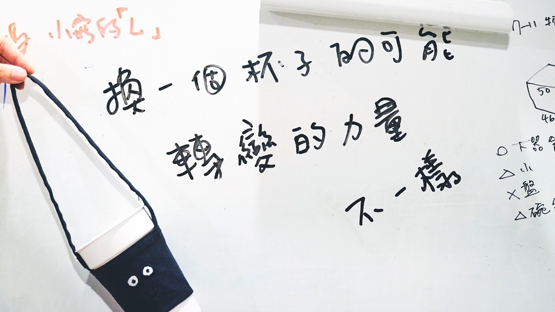 小窩的「L」
換一個杯子的可能
轉變的力量
不一樣
7-11
50
46
○下器
△小
×盤
△碗